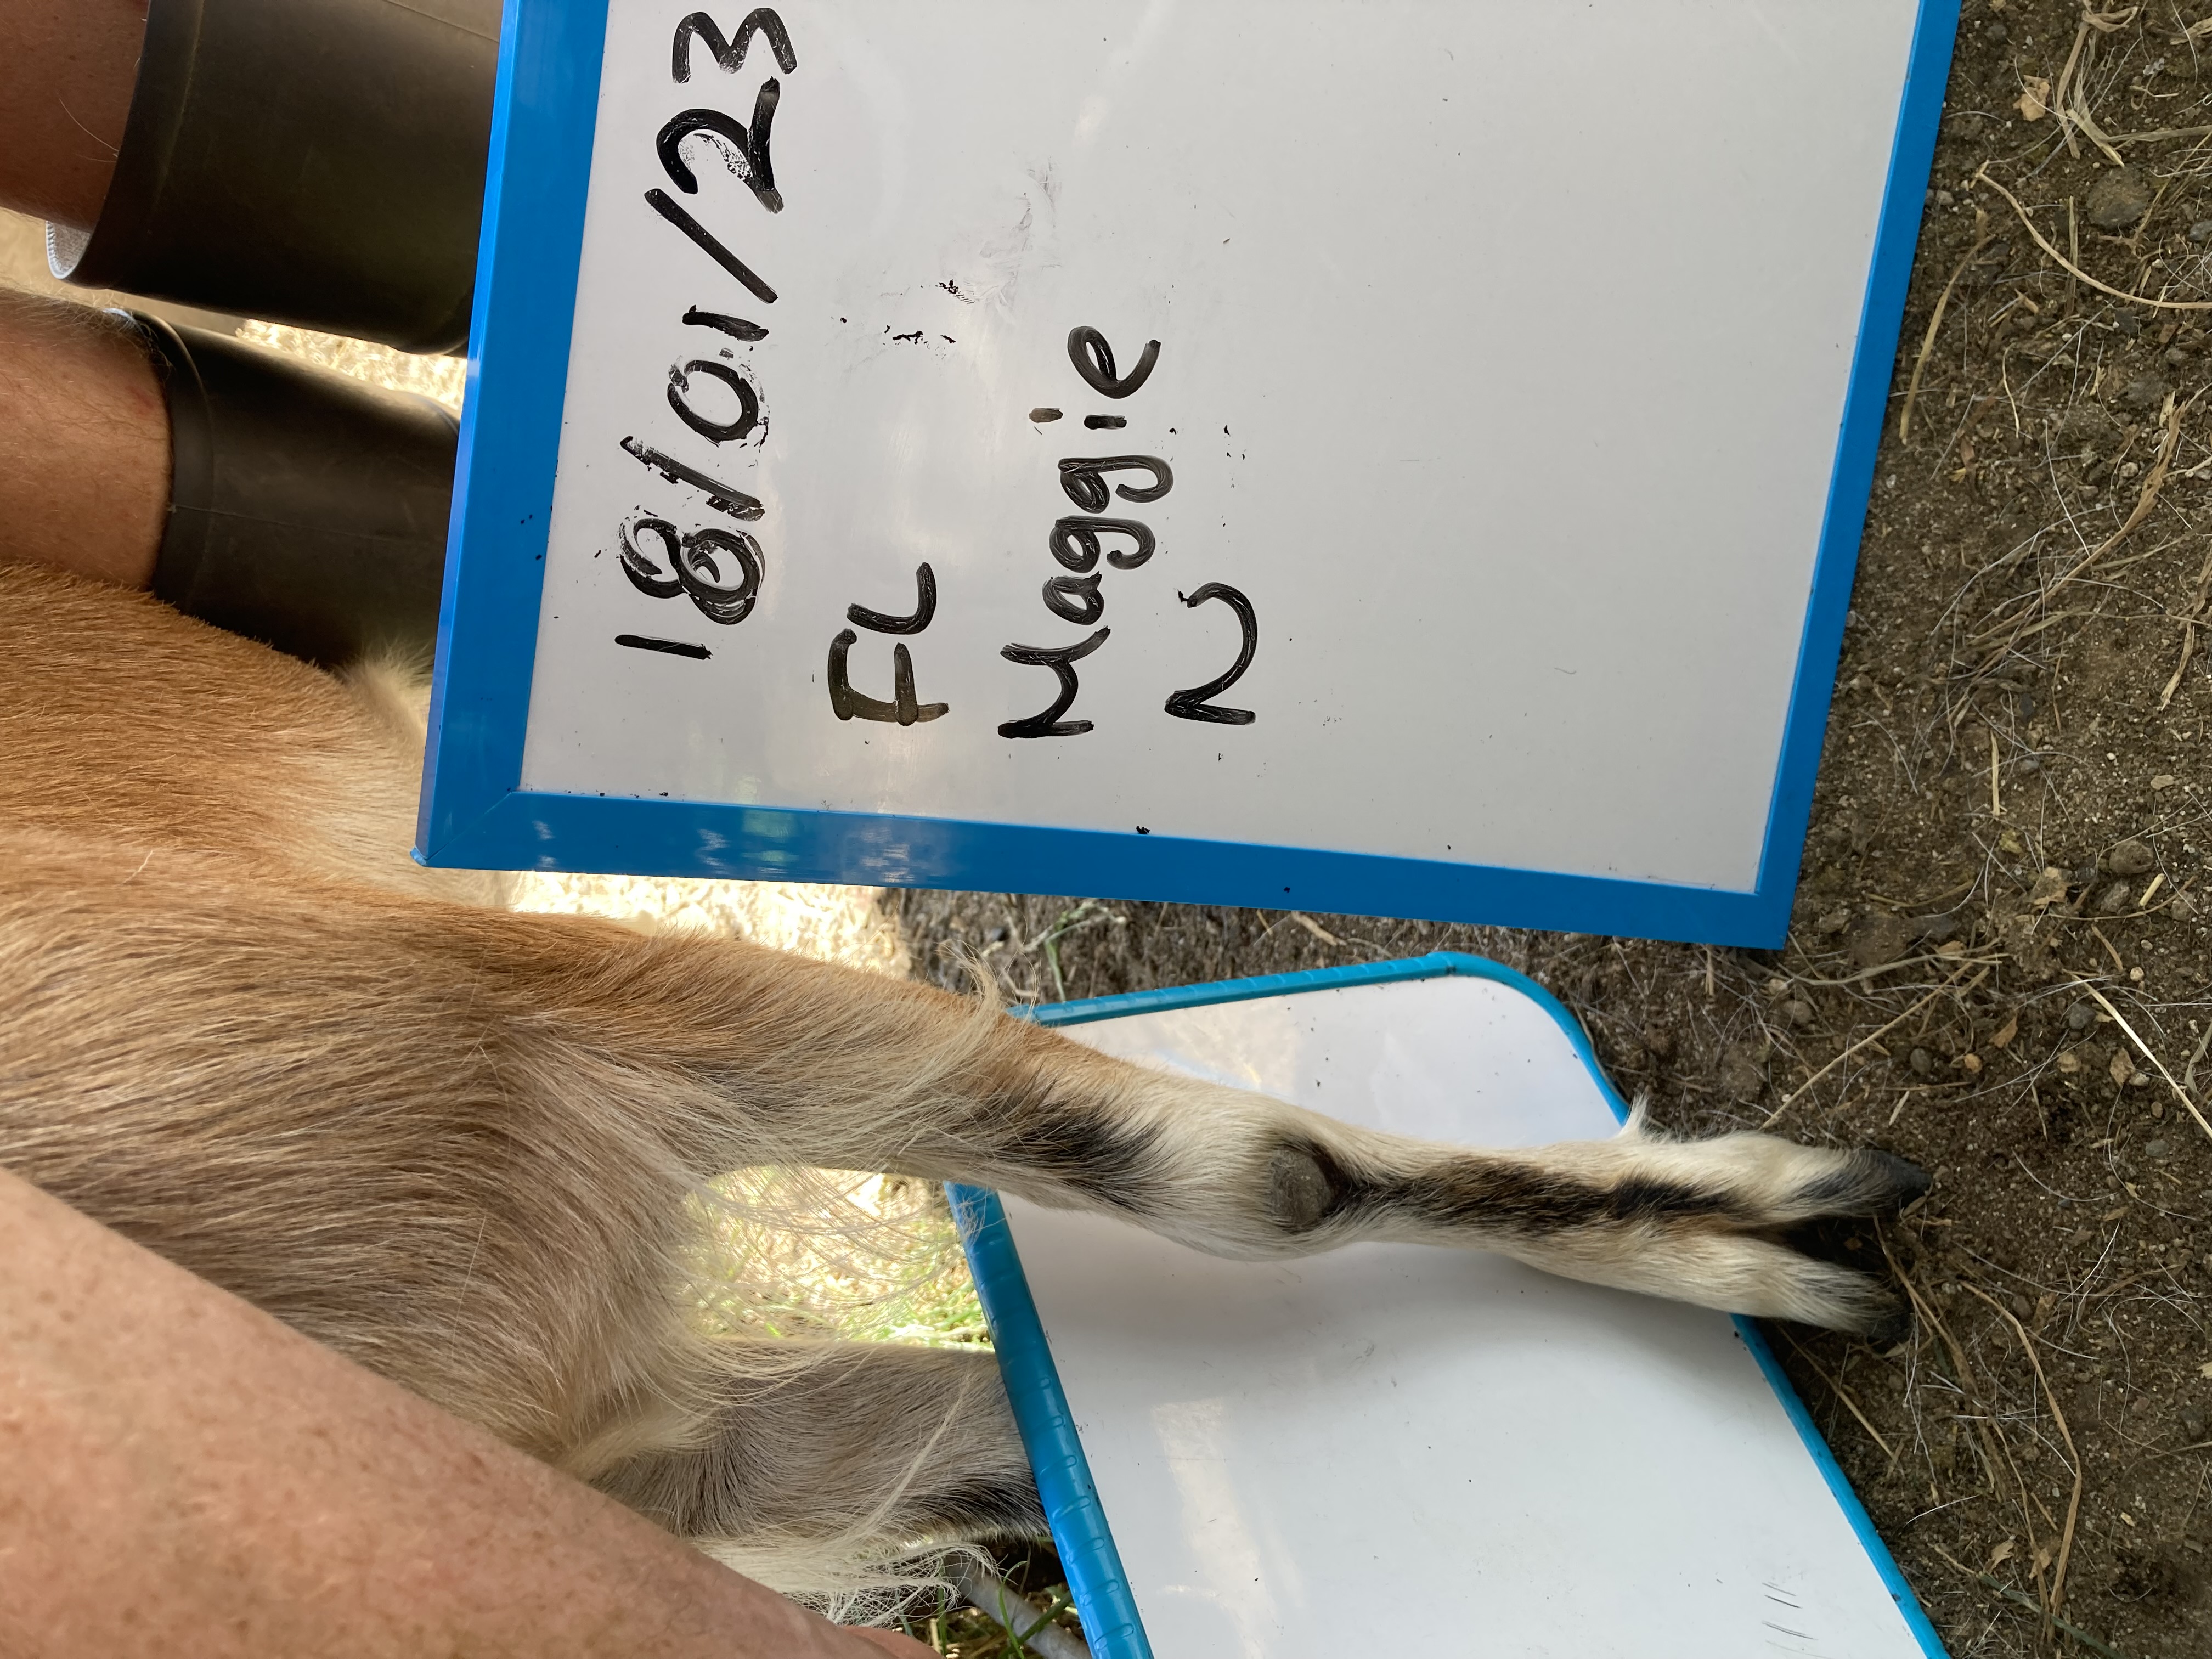 18/01/23
FL
Maggie
N